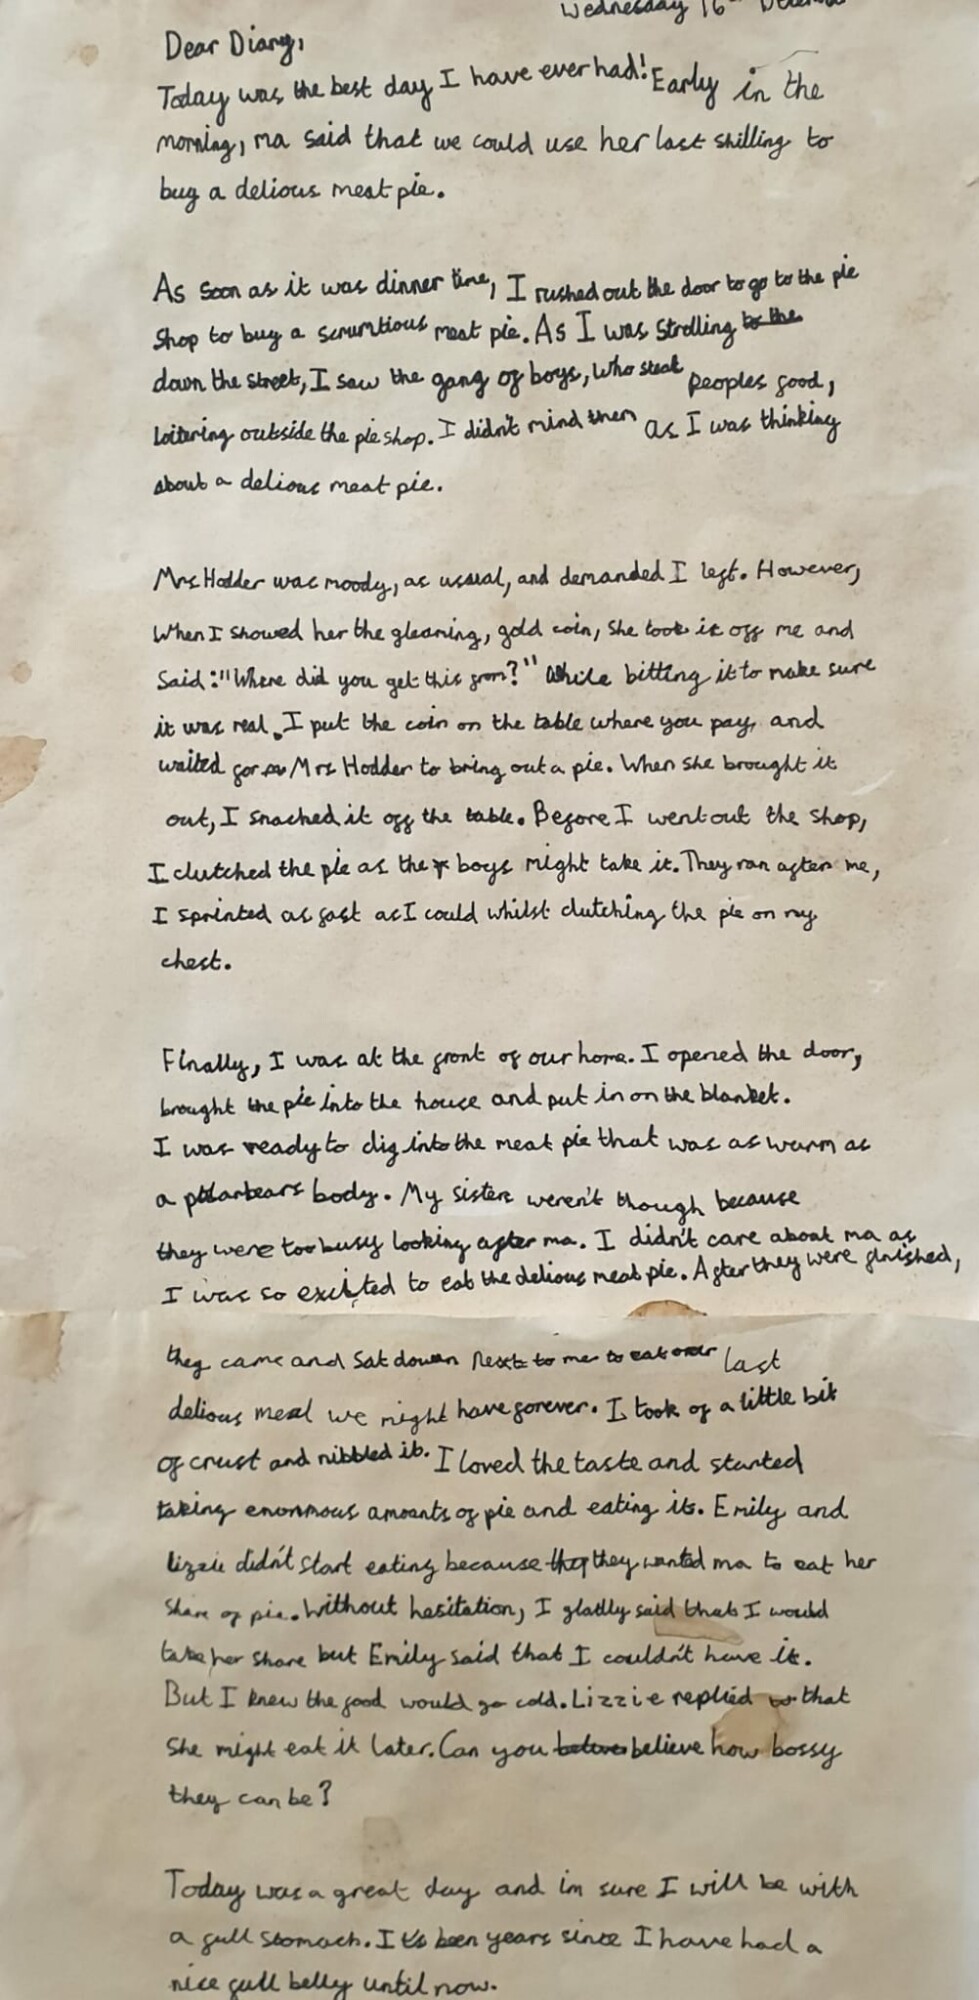 Wednesday 16th December
Dear Diary,
Today was the best day I have ever had! Early in the
morning, ma said that we could use her last shilling to
buy a delious meat pie.
As soon as it was dinner time, I rushed out the door to go to the pie
shop to buy a scrumtious meat pie. As I was strolling to the
down the street, I saw the gang of boys, who steal peoples food,
loitering outside the pie shop. I didn't mind them as I was thinking
about a delious meat pie.
Mrs Hodder was moody, as usual, and demanded I left. However,
when I showed her the gleaming, gold coin, she took it off me and
said: "Where did you get this from?" while bitting it to make sure
it was real. I put the coin on the table where you pay, and
waited for Mrs Hodder to bring out a pie. When she brought it
out, I snached it off the table. Before I went out the shop,
I clutched the pie as the boys might take it. They ran after me,
I sprinted as fast as I could whilst clutching the pie on my
chest.
Finally, I was at the front of our home. I opened the door,
brought the pie into the house and put in on the blanket.
I was ready to dig into the meat pie that was as warm as
a polarbears body. My sisters weren't though because
they were too busy looking after ma. I didn't care about ma as
I was so exicted to eat the delious meat pie. After they were finished,
they came and sat down next to me to eat our last
delious meal we might have forever. I took of a little bit
of crust and nibbled it. I loved the taste and started
taking enormous amounts of pie and eating it. Emily and
lizzie didn't start eating because they they wanted ma to eat her
share of pie. Without hesitation, I gladly said that I would
take her share but Emily said that I couldn't have it.
But I knew the food would go cold. Lizzie replied to that
she might eat it later. Can you believe how bossy
they can be?
Today was a great day and im sure I will be with
a full stomach. It's been years since I have had a
nice full belly until now.